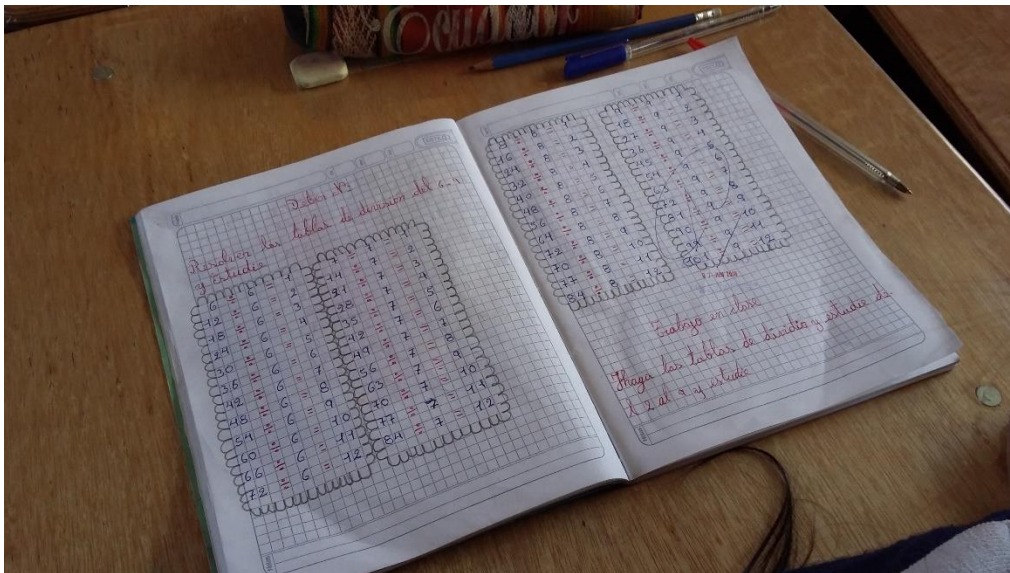 Ecuador
Deber Nº1
Resolver las tablas de división del 6-9
y estudie
6 ÷ 6 = 1
12 ÷ 6 = 2
18 ÷ 6 = 3
24 ÷ 6 = 4
30 ÷ 6 = 5
36 ÷ 6 = 6
42 ÷ 6 = 7
48 ÷ 6 = 8
54 ÷ 6 = 9
60 ÷ 6 = 10
66 ÷ 6 = 11
72 ÷ 6 = 12
7 ÷ 7 = 1
14 ÷ 7 = 2
21 ÷ 7 = 3
28 ÷ 7 = 4
35 ÷ 7 = 5
42 ÷ 7 = 6
49 ÷ 7 = 7
56 ÷ 7 = 8
63 ÷ 7 = 9
70 ÷ 7 = 10
77 ÷ 7 = 11
84 ÷ 7 = 12
16 ÷ 8 = 2
24 ÷ 8 = 3
32 ÷ 8 = 4
40 ÷ 8 = 5
48 ÷ 8 = 6
56 ÷ 8 = 7
64 ÷ 8 = 8
72 ÷ 8 = 9
70 ÷ 8 = 10
77 ÷ 8 = 11
84 ÷ 8 = 12
18 ÷ 9 = 2
27 ÷ 9 = 3
36 ÷ 9 = 4
45 ÷ 9 = 5
54 ÷ 9 = 6
63 ÷ 9 = 7
72 ÷ 9 = 8
81 ÷ 9 = 9
90 ÷ 9 = 10
÷ 9 = 11
÷ 9 = 12
Trabajo en clase
Haga las tablas de dividir y estudie de
l 2 al 9 y estudie